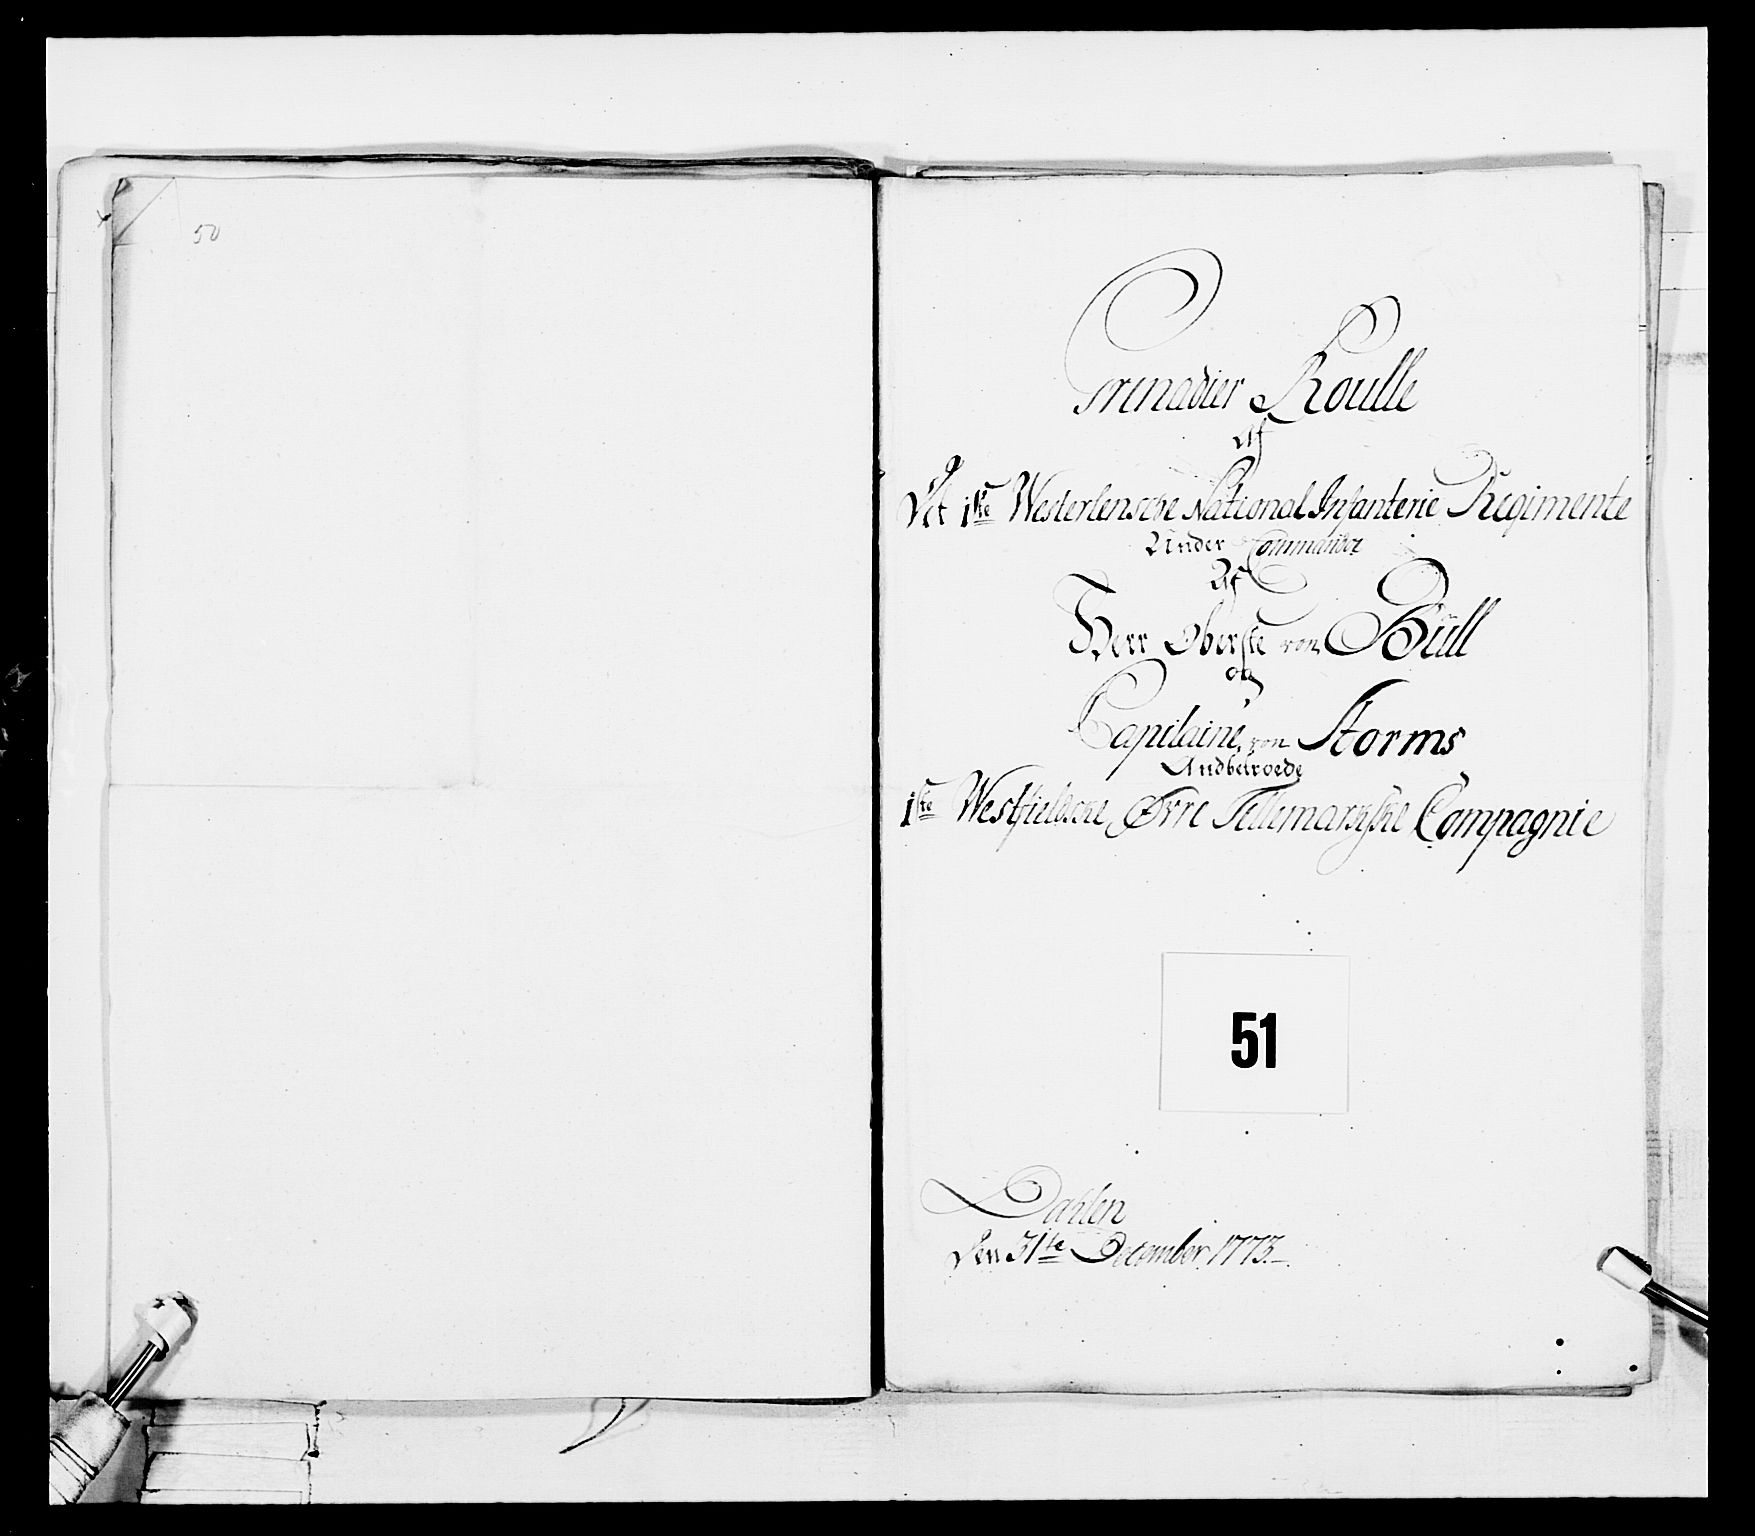 50
Grenadier Roulle
Af
Det 1ste Westerlensche National Infanterie Regimente
Under Commando
Af
Herr Oberste von Büll
og
Capitaine von Storms
Andbetroede
1ste Westfieldsche Øvre Tellemarkske Compagnie
51
Dahlen
Den 31te December 1773.